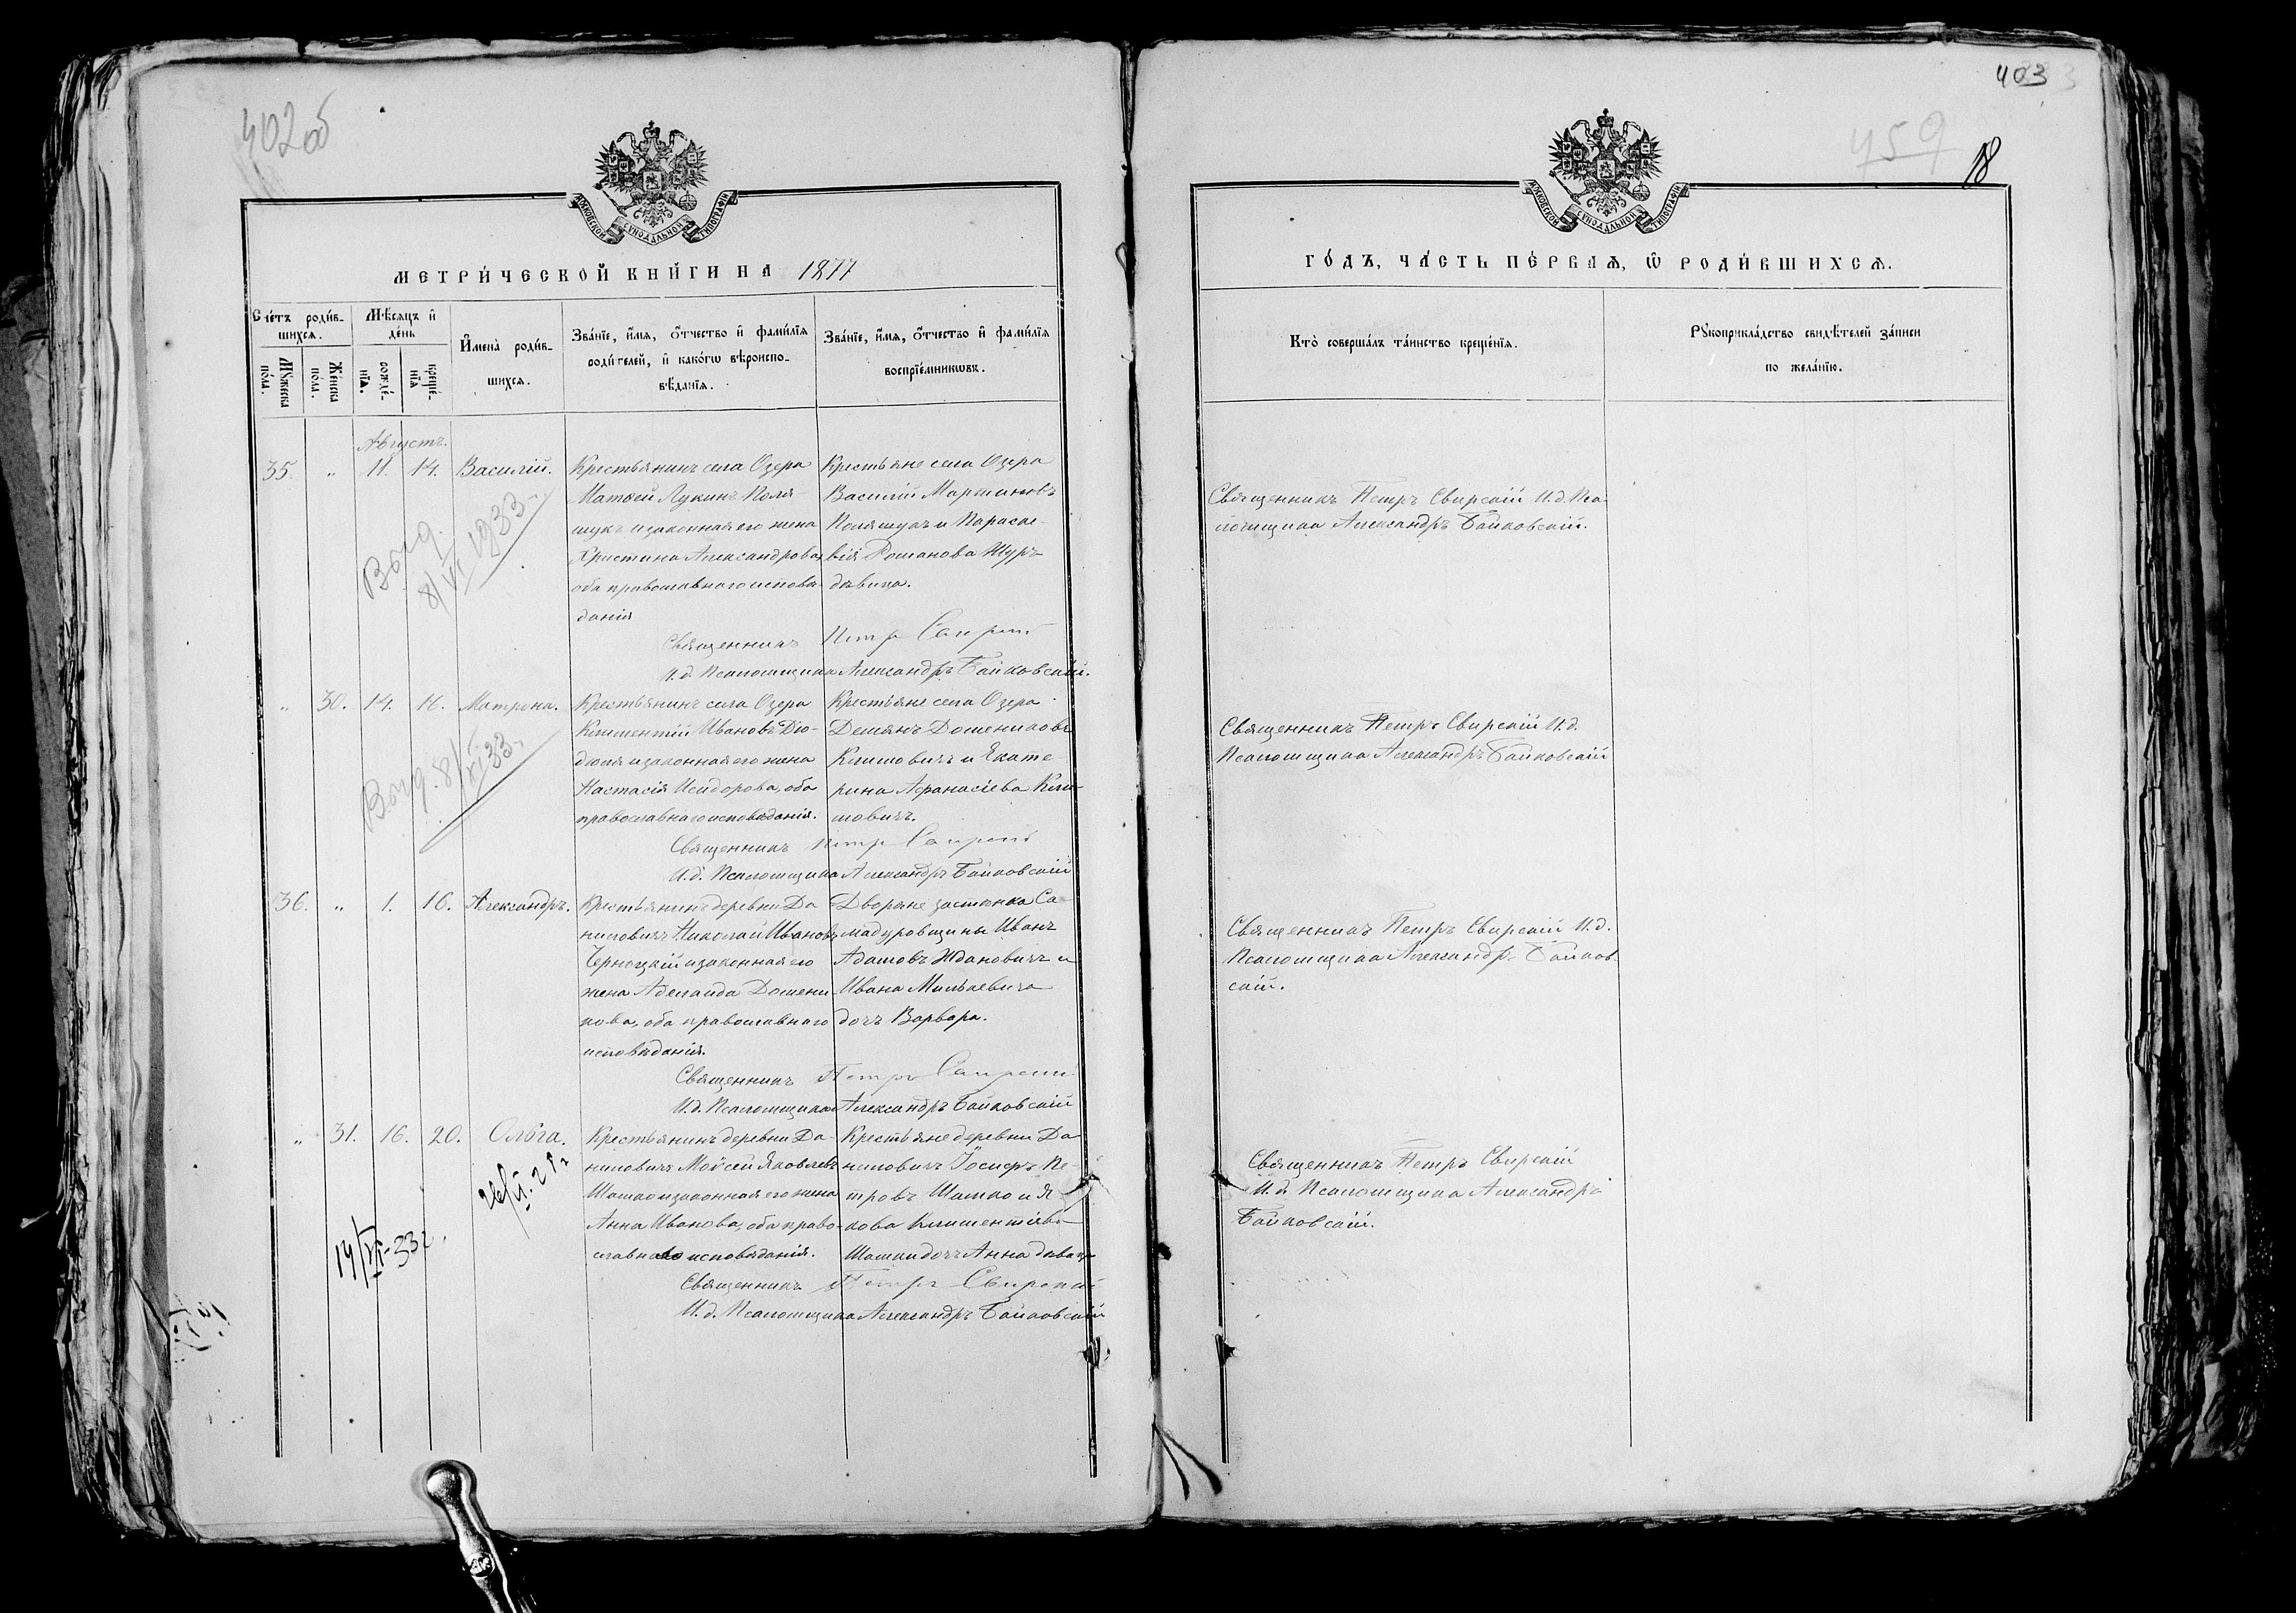 402об
МОСКОВСКОЙ СУНОДАЛЬНОЙ ТИПОГРАФІИ
МЕТРИ́ЧЕСКОЙ КНИ́ГИ НА 1877
Счётъ роди́в-
шихся.
Мꙋжеска по́ла.
Же́нска пола.
Мѣ́сяцъ и҆ де́нь
рожде́-нїѧ.
креще́-нїѧ
И҆мена̀ роди́в-
шихсѧ.
Зва́нїе, и҆́мѧ, ѻ҆́тчество и҆ фами́лїѧ
роди́телей, и҆ како́гѡ вѣроиспо-
вѣ́данїѧ.
Зва́нїе, и҆́мѧ, ѻ҆́тчество и҆ фами́лїѧ
воспрїе́мникѡвъ.
Августъ.
35. " 11. 14. Василій.
Крестьянинъ села Озера
Матѳей Лукинъ Поля-
щукъ и законная его жена
Христина Александрова,
оба православнаго исповѣ-
данія
Крестьяне села Озера
Василій Мартиновъ
Полящукъ и Параске-
вія Романова Шуръ
дѣвица.
Священникъ Петръ Свирскій
И.д. Псаломщика Александръ Байковскій.
Выд.
8/VI 1933
" 30. 14. 16. Матрона.
Крестьянинъ села Озера
Климентій Ивановъ Дю-
дюля и законная его жена
Настасія Исидорова, оба
православнаго исповѣданія.
Крестьяне села Озера
Деміянъ Домениковъ
Климовичъ и Екате
рина Афанасіева Кли-
мовичъ.
Священникъ Петръ Свирскій
И.д. Псаломщика Александръ Байковскій
Выд. 8/XI 33
36. " 1. 16. Александръ.
Крестьянинъ деревни Да
ниловичъ Николай Ивановъ
Черноцкій и законная его
жена Аделаида Домени-
кова, оба православнаго
исповѣданія.
Дворяне застѣнка Са-
мадуровщины Иванъ
Адамовъ Ждановичъ и
Ивана Милькевича
дочъ Варвара.
Священникъ Петръ Свирскій
И.д. Псаломщика Александръ Байковскій
" 31. 16. 20. Ольга.
Крестьянинъ деревни Да-
ниловичъ Мойсей Яковлевъ
Шашко и законная его жена
Анна Иванова, оба право-
славнаго исповѣданія.
Крестьяне деревни Да
ниловичъ Іосифъ Пе-
тровъ Шашко и Я
кова Климентіева
Шашки дочъ Анна дѣвица
Священникъ Петръ Свирскій
И.д. Псаломщика Александръ Байковскій
403
459
18
МОСКОВСКОЙ СУНОДАЛЬНОЙ ТИПОГРАФІИ
ГО́ДЪ, ЧА́СТЬ ПЕ́РВАѦ, Ѡ҆ РОДИ́ВШИХСѦ.
Кто̀ соверша́лъ та́инство креще́нїѧ.
Рꙋкоприкла́дство свидѣ́телей за́писи
по жела́нїю.
Священникъ Петръ Свирскій И.д. Пса-
ломщика Александръ Байковскій.
Священникъ Петръ Свирскій И.д.
Псаломщика Александръ Байковскій
Священникъ Петръ Свирскій И.д.
Псаломщика Александръ Байков
скій.
Священникъ Петръ Свирскій
И.д. Псаломщика Александръ
Байковскій.